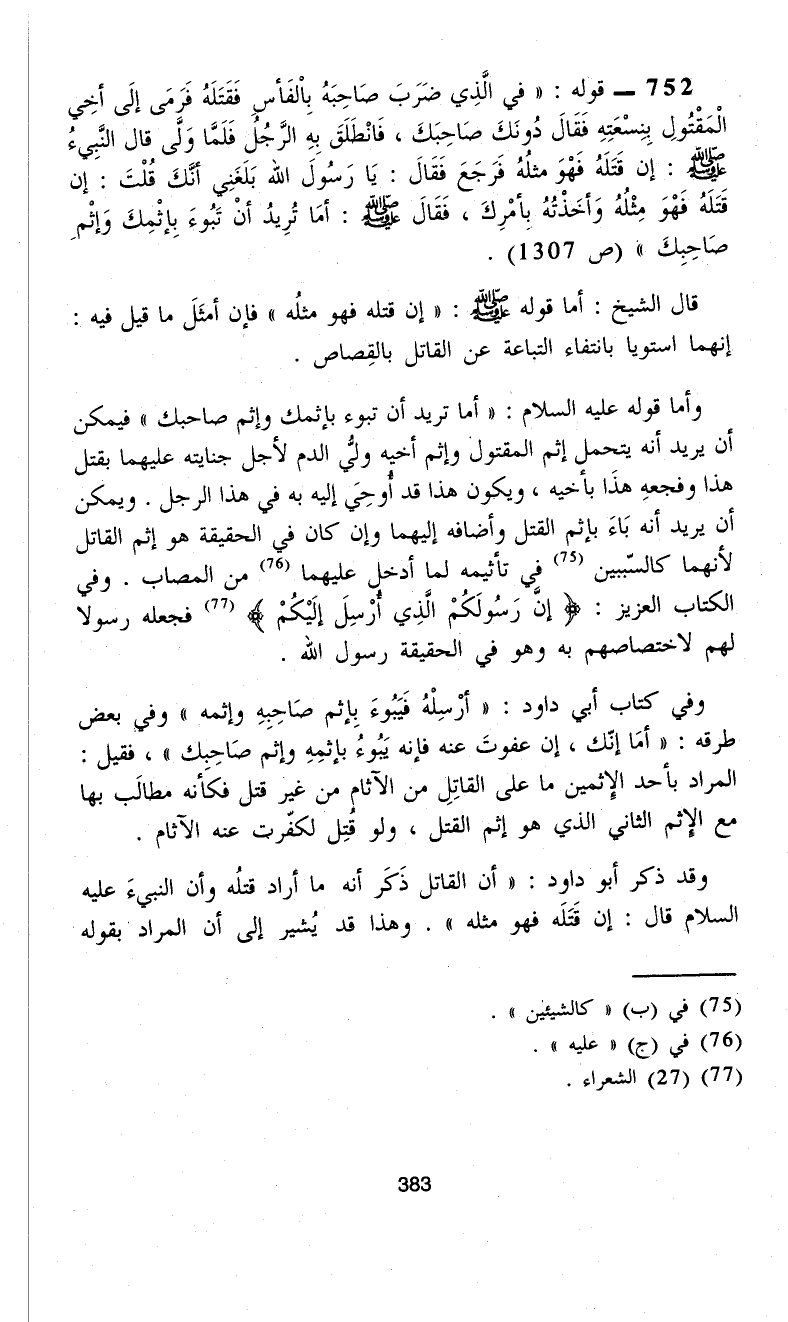 752 ـ قوله : « في الَّذِي ضَرَبَ صَاحِبَهُ بِالْفَأسِ فَقَتَلَهُ فَرَمَى إلَى أخِي
الْمَقْتُولِ بِنِسْعَتِهِ فَقَالَ دُونَكَ صَاحِبَكَ ، فَانْطَلَقَ بِهِ الرَّجُلُ فَلَمَّا وَلَّى قال النَّبِيءُ
ﷺ : إن قَتَلَهُ فَهْوَ مثلُهُ فَرَجَعَ فَقَالَ : يَا رَسُولَ الله بَلَغَنِي أنَّكَ قُلْتَ : إن
قَتَلَهُ فَهْوَ مِثْلُهُ وَأخَذْتُهُ بِأمْرِكَ ، فَقَالَ ﷺ : أمَا تُرِيدُ أنْ تَبُوءَ بِإثْمِكَ وَإثْمِ
صَاحِبِكَ » (ص 1307) .
قال الشيخ : أما قوله ﷺ : « إن قتله فهو مثلُه » فإن أمثَلَ ما قيل فيه :
إنهما استويا بانتفاء التباعة عن القاتل بالقِصاص .
وأما قوله عليه السلام : « أما تريد أن تبوء بإثمك وإثم صاحبك » فيمكن
أن يريد أنه يتحمل إثم المقتول وإثم أخيه وليُّ الدم لأجل جنايته عليهما بقتل
هذا وفجعهِ هذَا بأخيه ، ويكون هذا قد أُوحِيَ إليه به في هذا الرجل . ويمكن
أن يريد أنه بَاءَ بإثم القتل وأضافه إليهما وإن كان في الحقيقة هو إثم القاتل
لأنهما كالسّببين (75) في تأثيمه لما أدخل عليهما (76) من المصاب . وفي
الكتاب العزيز : ﴿ إنَّ رَسُولَكُمْ الَّذِي أُرْسِلَ إلَيْكُمْ ﴾ (77) فجعله رسولا
لهم لاختصاصهم به وهو في الحقيقة رسول الله .
وفي كتاب أبي داود : « أرْسِلْهُ فَيَبُوءَ بِإثم صَاحِبِهِ وإثمه » وفي بعض
طرقه : « أمَا إنّك ، إن عفوتَ عنه فإنه يَبُوءُ بإثمِهِ وإثم صَاحِبِك » ، فقيل :
المراد بأحد الإثمين ما على القاتِلِ من الآثام من غير قتل فكأنه مطالَب بها
مع الإثم الثاني الذي هو إثم القتل ، ولو قُتِل لكفّرت عنه الآثام .
وقد ذكر أبو داود : « أن القاتل ذَكَر أنه ما أراد قتلُه وأن النبيءَ عليه
السلام قال : إن قَتَلَه فهو مثله » . وهذا قد يُشير إلى أن المراد بقوله
(75) في (ب) « كالشيئين » .
(76) في (ج) « عليه » .
(77) (27) الشعراء .
383